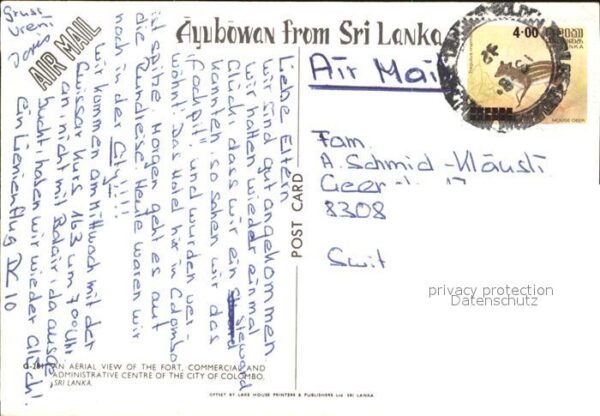 Ayubōwan from Sri Lanka
AIR MAIL
Gruss
Vreni
Liebe Eltern
wir sind gut angekommen
wir hatten wieder einmal
Glück, dass wir ein Steward
kannten, so sahen wir das
"Cockpit", und wurden ver-
wöhnt! Das Hotel hir in Colombo
ist spitze Morgen geht es auf
die Rundreise. Heute waren wir
noch in der City!!!!
wir kommen am Mittwoch mit der
Swissar Kurs 163 um 7.00 Uhr
an, nicht mit Balair, da ausge-
bucht, haben wir wieder Glück!
ein Linienflug DC 10
Air Mail
4.00
LANKA
MOUSE DEER
Fam.
A. Schmid-Kläusli
8308
Swit
POST CARD
privacy protection
Datenschutz
AN AERIAL VIEW OF THE FORT, COMMERCIAL AND
ADMINISTRATIVE CENTRE OF THE CITY OF COLOMBO,
SRI LANKA.
OFFSET BY LAKE HOUSE PRINTERS & PUBLISHERS Ltd. SRI LANKA.